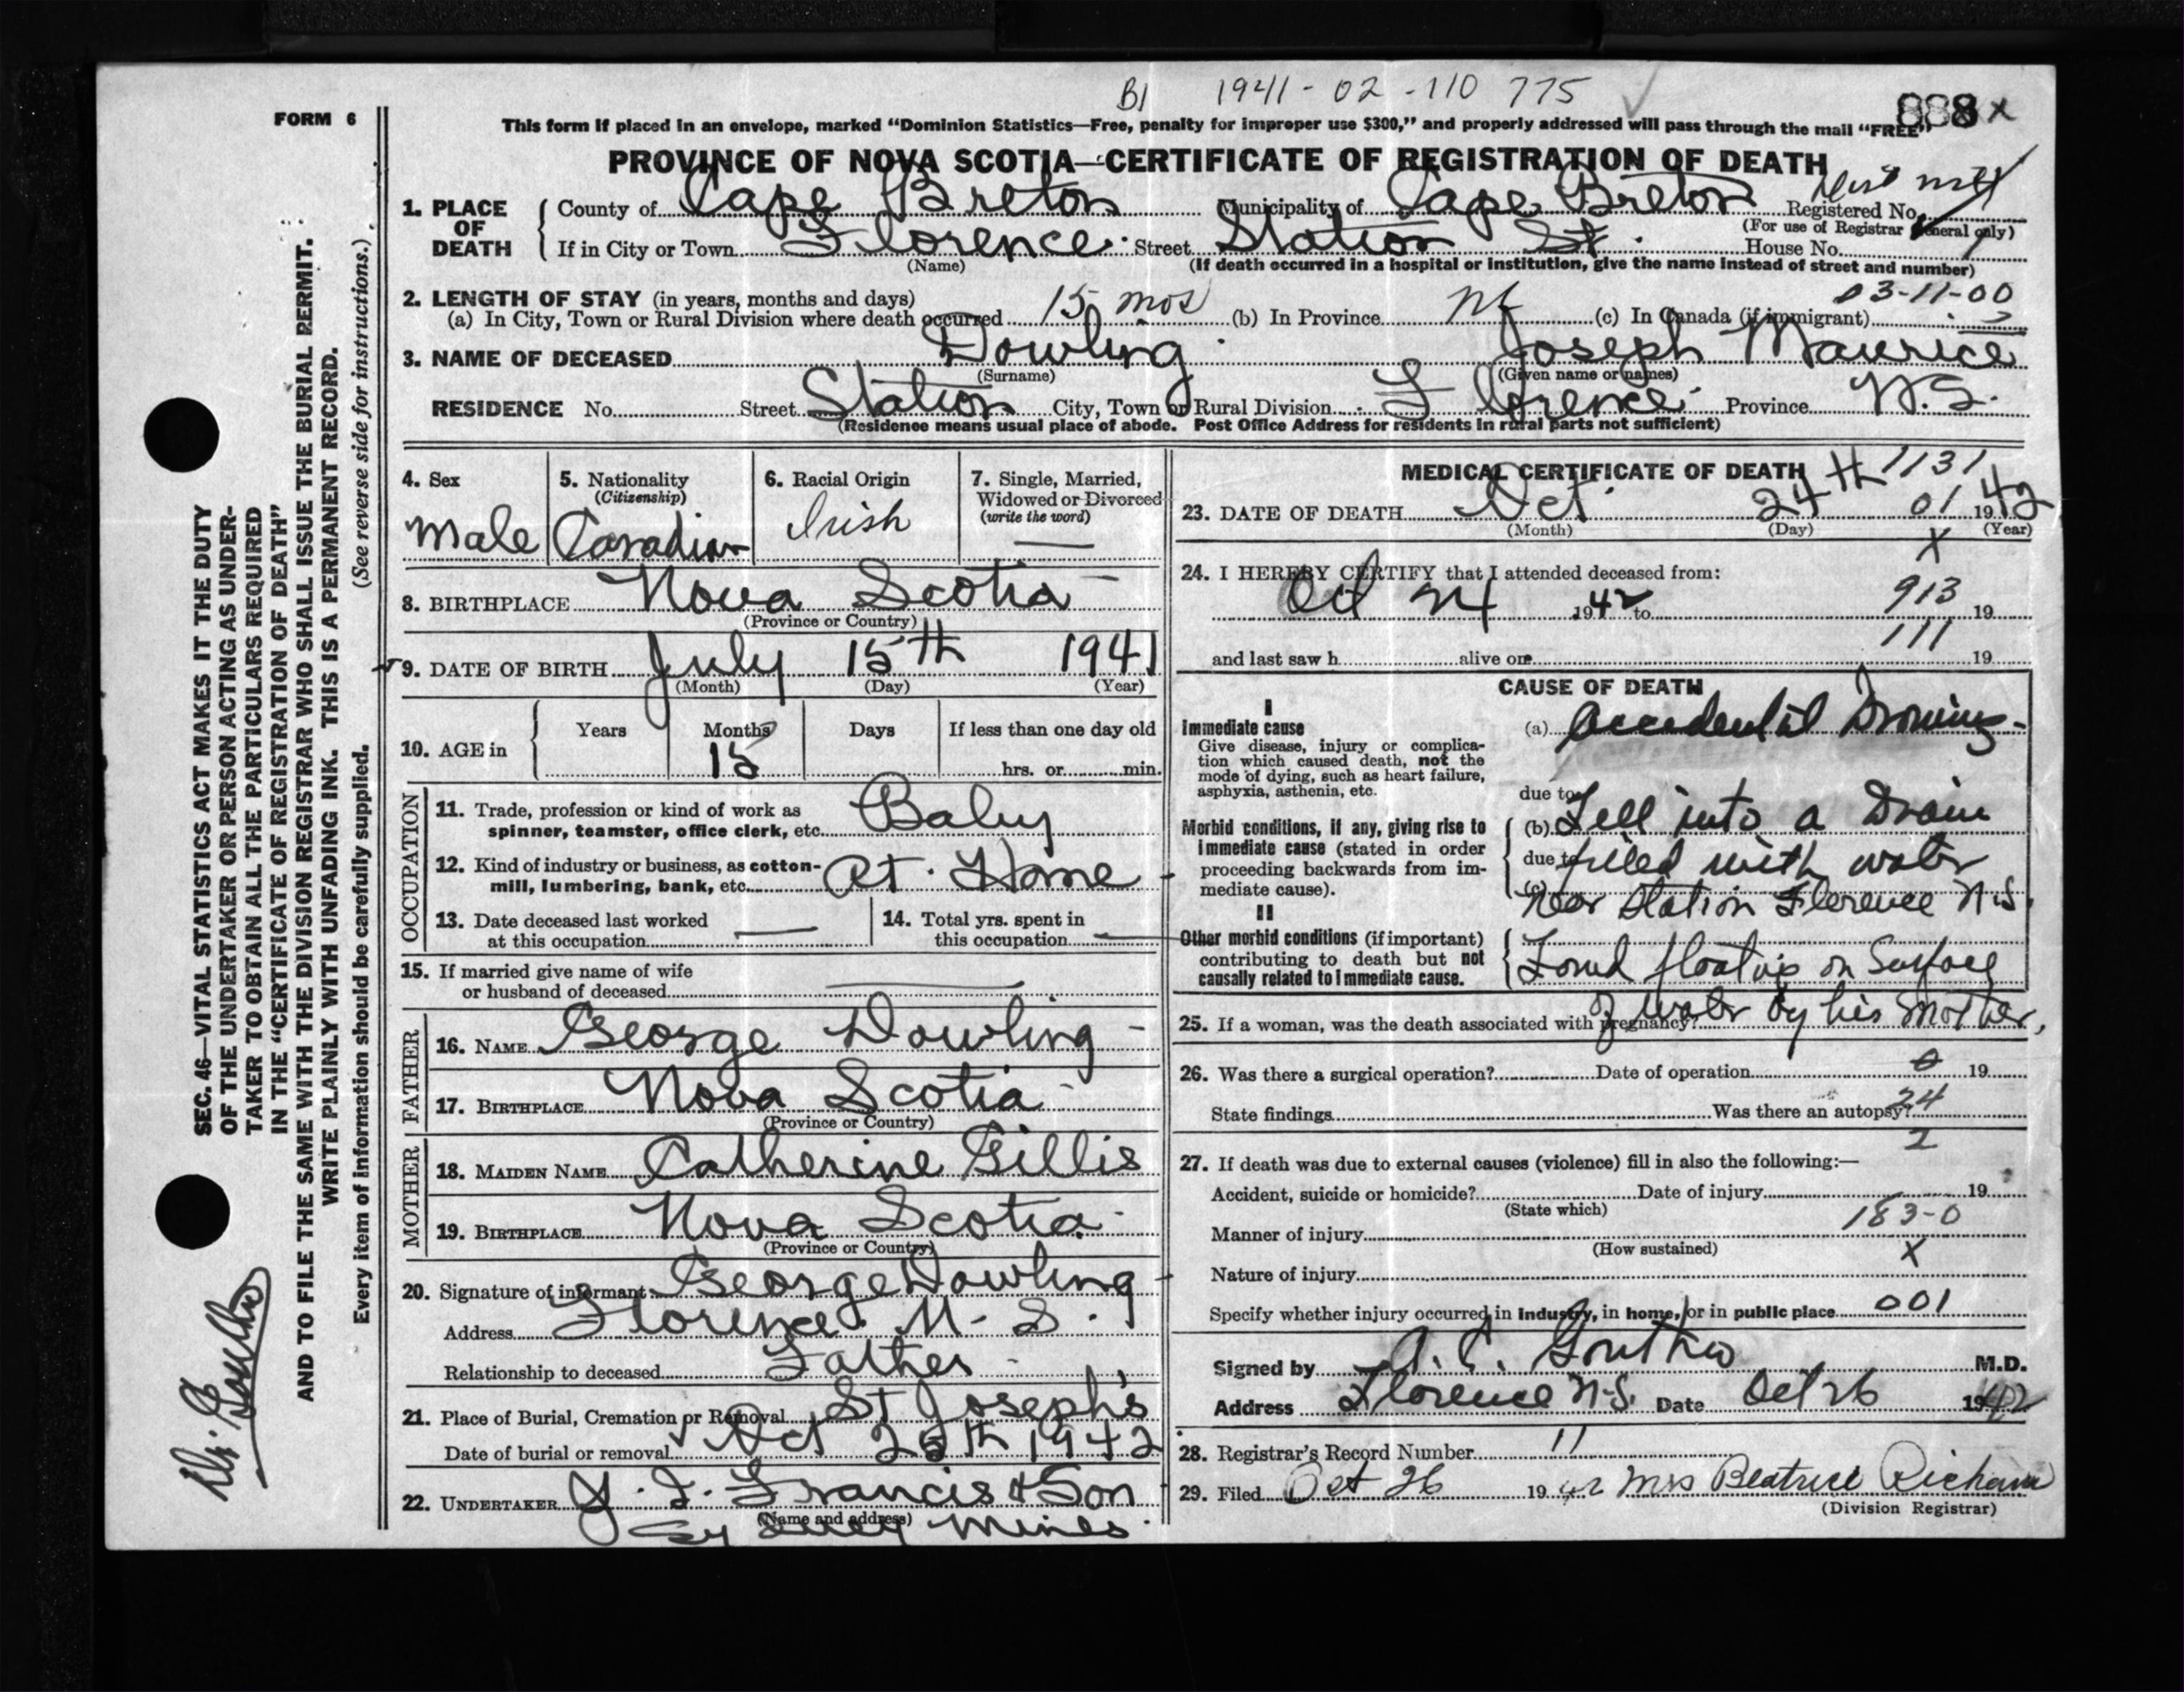 B1 1941-02-110 775
888 X
FORM 6
This form if placed in an envelope, marked “Dominion Statistics—Free, penalty for improper use $300,” and properly addressed will pass through the mail “FREE”
PROVINCE OF NOVA SCOTIA—CERTIFICATE OF REGISTRATION OF DEATH
1. PLACE OF DEATH
County of Cape Breton Municipality of Cape Breton Registered No.
(For use of Registrar General only)
If in City or Town Florence Street Station St. House No.
(Name) (If death occurred in a hospital or institution, give the name instead of street and number)
03-11-00
2. LENGTH OF STAY (in years, months and days)
(a) In City, Town or Rural Division where death occurred 15 mos (b) In Province (c) In Canada (if immigrant)
3. NAME OF DECEASED Dowling Joseph Maurice
(Surname) (Given name or names)
RESIDENCE No. Street Station City, Town or Rural Division Florence Province N.S.
(Residence means usual place of abode. Post Office Address for residents in rural parts not sufficient)
4. Sex
Male
5. Nationality
(Citizenship)
Canadian
6. Racial Origin
Irish
7. Single, Married,
Widowed or Divorced
(write the word)
—
8. BIRTHPLACE Nova Scotia
(Province or Country)
9. DATE OF BIRTH July 15th 1941
(Month) (Day) (Year)
10. AGE in Years Months Days If less than one day old
15 hrs. or min.
OCCUPATION
11. Trade, profession or kind of work as
spinner, teamster, office clerk, etc. Baby
12. Kind of industry or business, as cotton-
mill, lumbering, bank, etc. At Home
13. Date deceased last worked
at this occupation —
14. Total yrs. spent in
this occupation —
15. If married give name of wife
or husband of deceased —
FATHER
16. NAME George Dowling
17. BIRTHPLACE Nova Scotia
(Province or Country)
MOTHER
18. MAIDEN NAME Catherine Gillis
19. BIRTHPLACE Nova Scotia
(Province or Country)
20. Signature of informant George Dowling
Address Florence N.S.
Relationship to deceased Father
21. Place of Burial, Cremation or Removal St Joseph's
Date of burial or removal Oct 25th 1942
22. UNDERTAKER J. J. Francis & Son
(Name and address)
Sydney Mines
MEDICAL CERTIFICATE OF DEATH
1131
23. DATE OF DEATH Oct 24th 01 1942
(Month) (Day) (Year)
X
24. I HEREBY CERTIFY that I attended deceased from:
Oct 24 1942 to 913 19
111
and last saw h alive on 19
CAUSE OF DEATH
I
Immediate cause
Give disease, injury or complica-
tion which caused death, not the
mode of dying, such as heart failure,
asphyxia, asthenia, etc.
(a) Accidental Drowning
due to
Morbid conditions, if any, giving rise to
immediate cause (stated in order
proceeding backwards from im-
mediate cause).
(b) Fell into a Drain
due to filled with water
(c) Near Station Florence N.S.
II
Other morbid conditions (if important)
contributing to death but not
causally related to immediate cause.
Found floating on Surface
of water by his Mother.
25. If a woman, was the death associated with pregnancy?
26. Was there a surgical operation? Date of operation 0 19
State findings Was there an autopsy? 24
2
27. If death was due to external causes (violence) fill in also the following:—
Accident, suicide or homicide? Date of injury 19
(State which)
183-0
Manner of injury
(How sustained)
X
Nature of injury
Specify whether injury occurred in industry, in home, or in public place 001
Signed by A. C. Gouthro M.D.
Address Florence N.S. Date Oct 26 1942
28. Registrar's Record Number 11
29. Filed Oct 26 1942 Mrs Beatrice
(Division Registrar)
SEC. 46—VITAL STATISTICS ACT MAKES IT THE DUTY
OF THE UNDERTAKER OR PERSON ACTING AS UNDER-
TAKER TO OBTAIN ALL THE PARTICULARS REQUIRED
IN THE “CERTIFICATE OF REGISTRATION OF DEATH”
AND TO FILE THE SAME WITH THE DIVISION REGISTRAR WHO SHALL ISSUE THE BURIAL PERMIT.
WRITE PLAINLY WITH UNFADING INK. THIS IS A PERMANENT RECORD.
Every item of information should be carefully supplied. (See reverse side for instructions.)
Dr. Gouthro